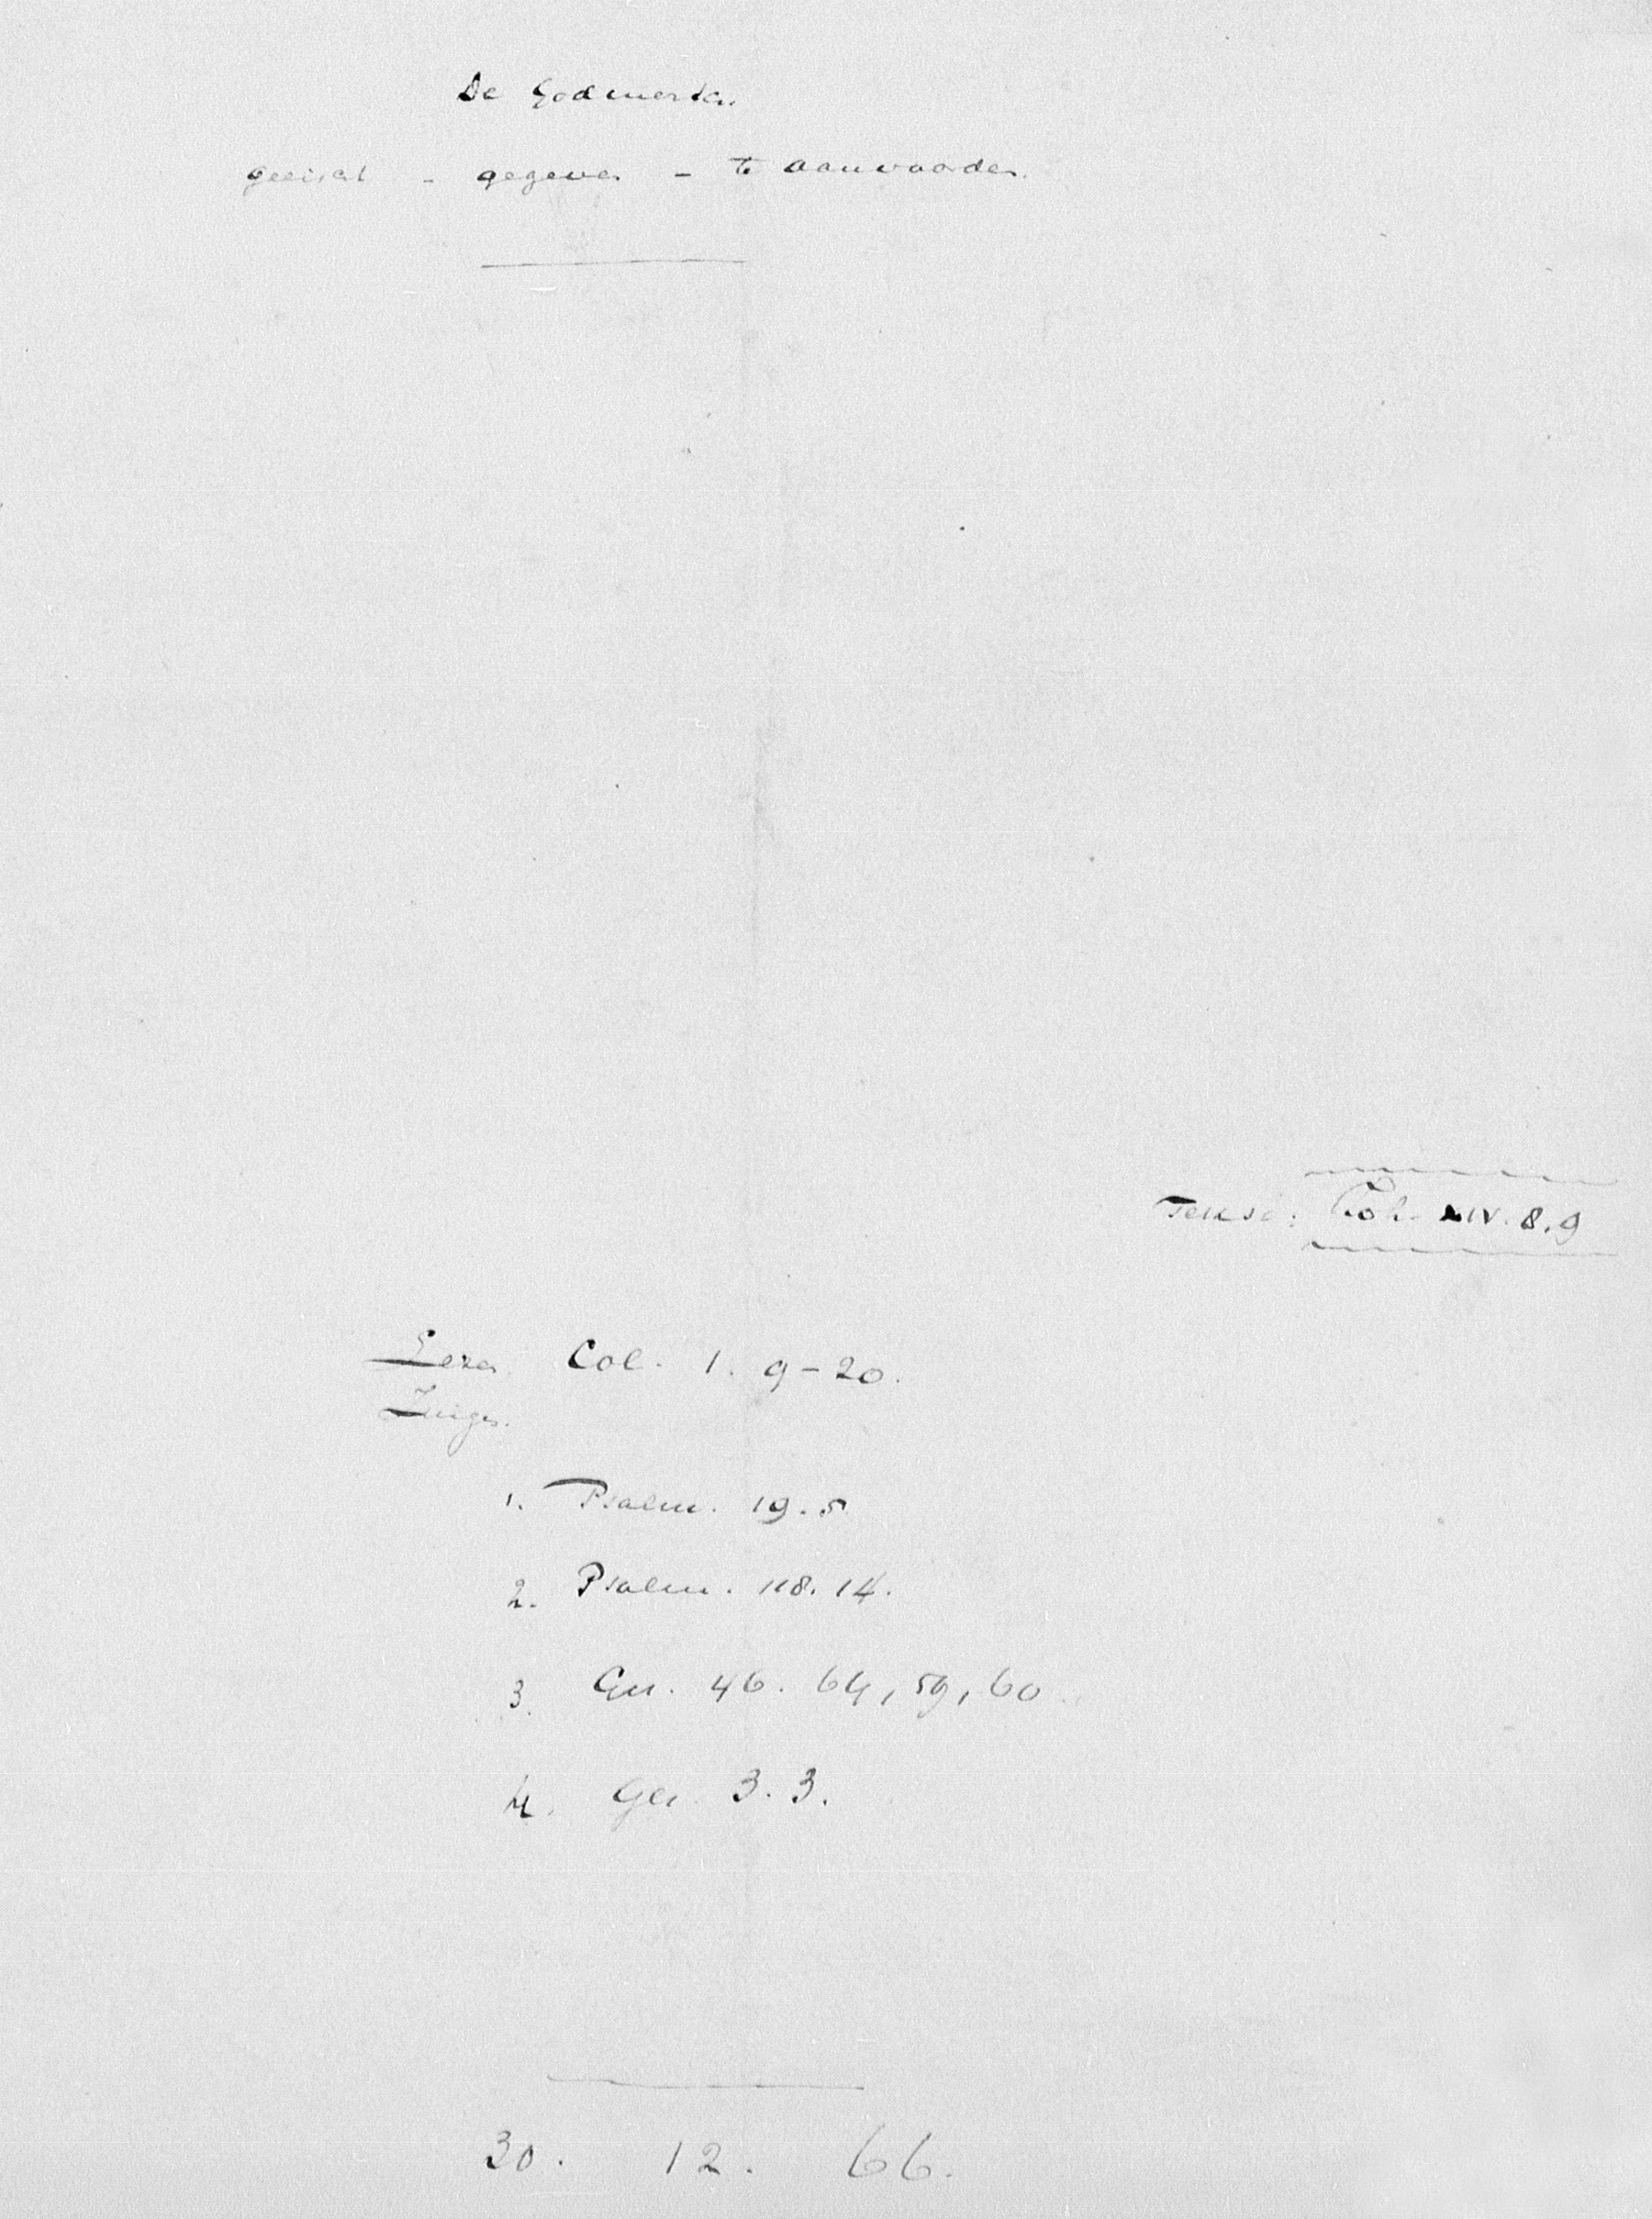 De Godmensch
geeischt - gegeven - te aanvaarden.
Tekst: Joh. XIV. 8.9
Lezen Col. 1. 9-20.
Zingen.
1. Psalm. 19.5
2. Psalm. 118. 14.
3. Gez. 46. 64, 59, 60.
4. Gez. 3. 3.
30. 12. 66.